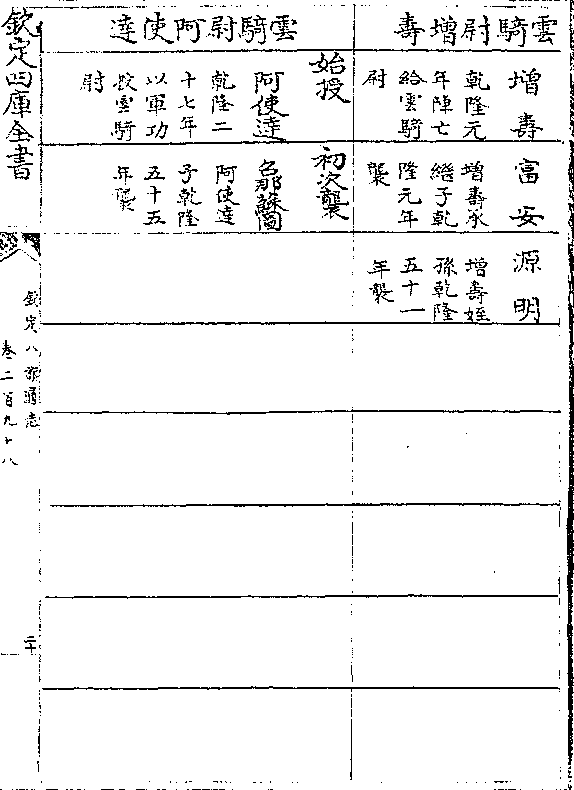 雲騎尉增壽
增壽
乾隆元
年陣亡
給雲騎
尉
富安
增壽承
繼子乾
隆元年
襲
源明
增壽姪
孫乾隆
五十一
年襲
雲騎尉阿使達
始授
阿使達
乾隆二
十七年
以軍功
授雲騎
尉
初次襲
多爾蘇圖
阿使達
子乾隆
五十五
年襲
欽定四庫全書
欽定八旗通志
卷二百九十八
二十